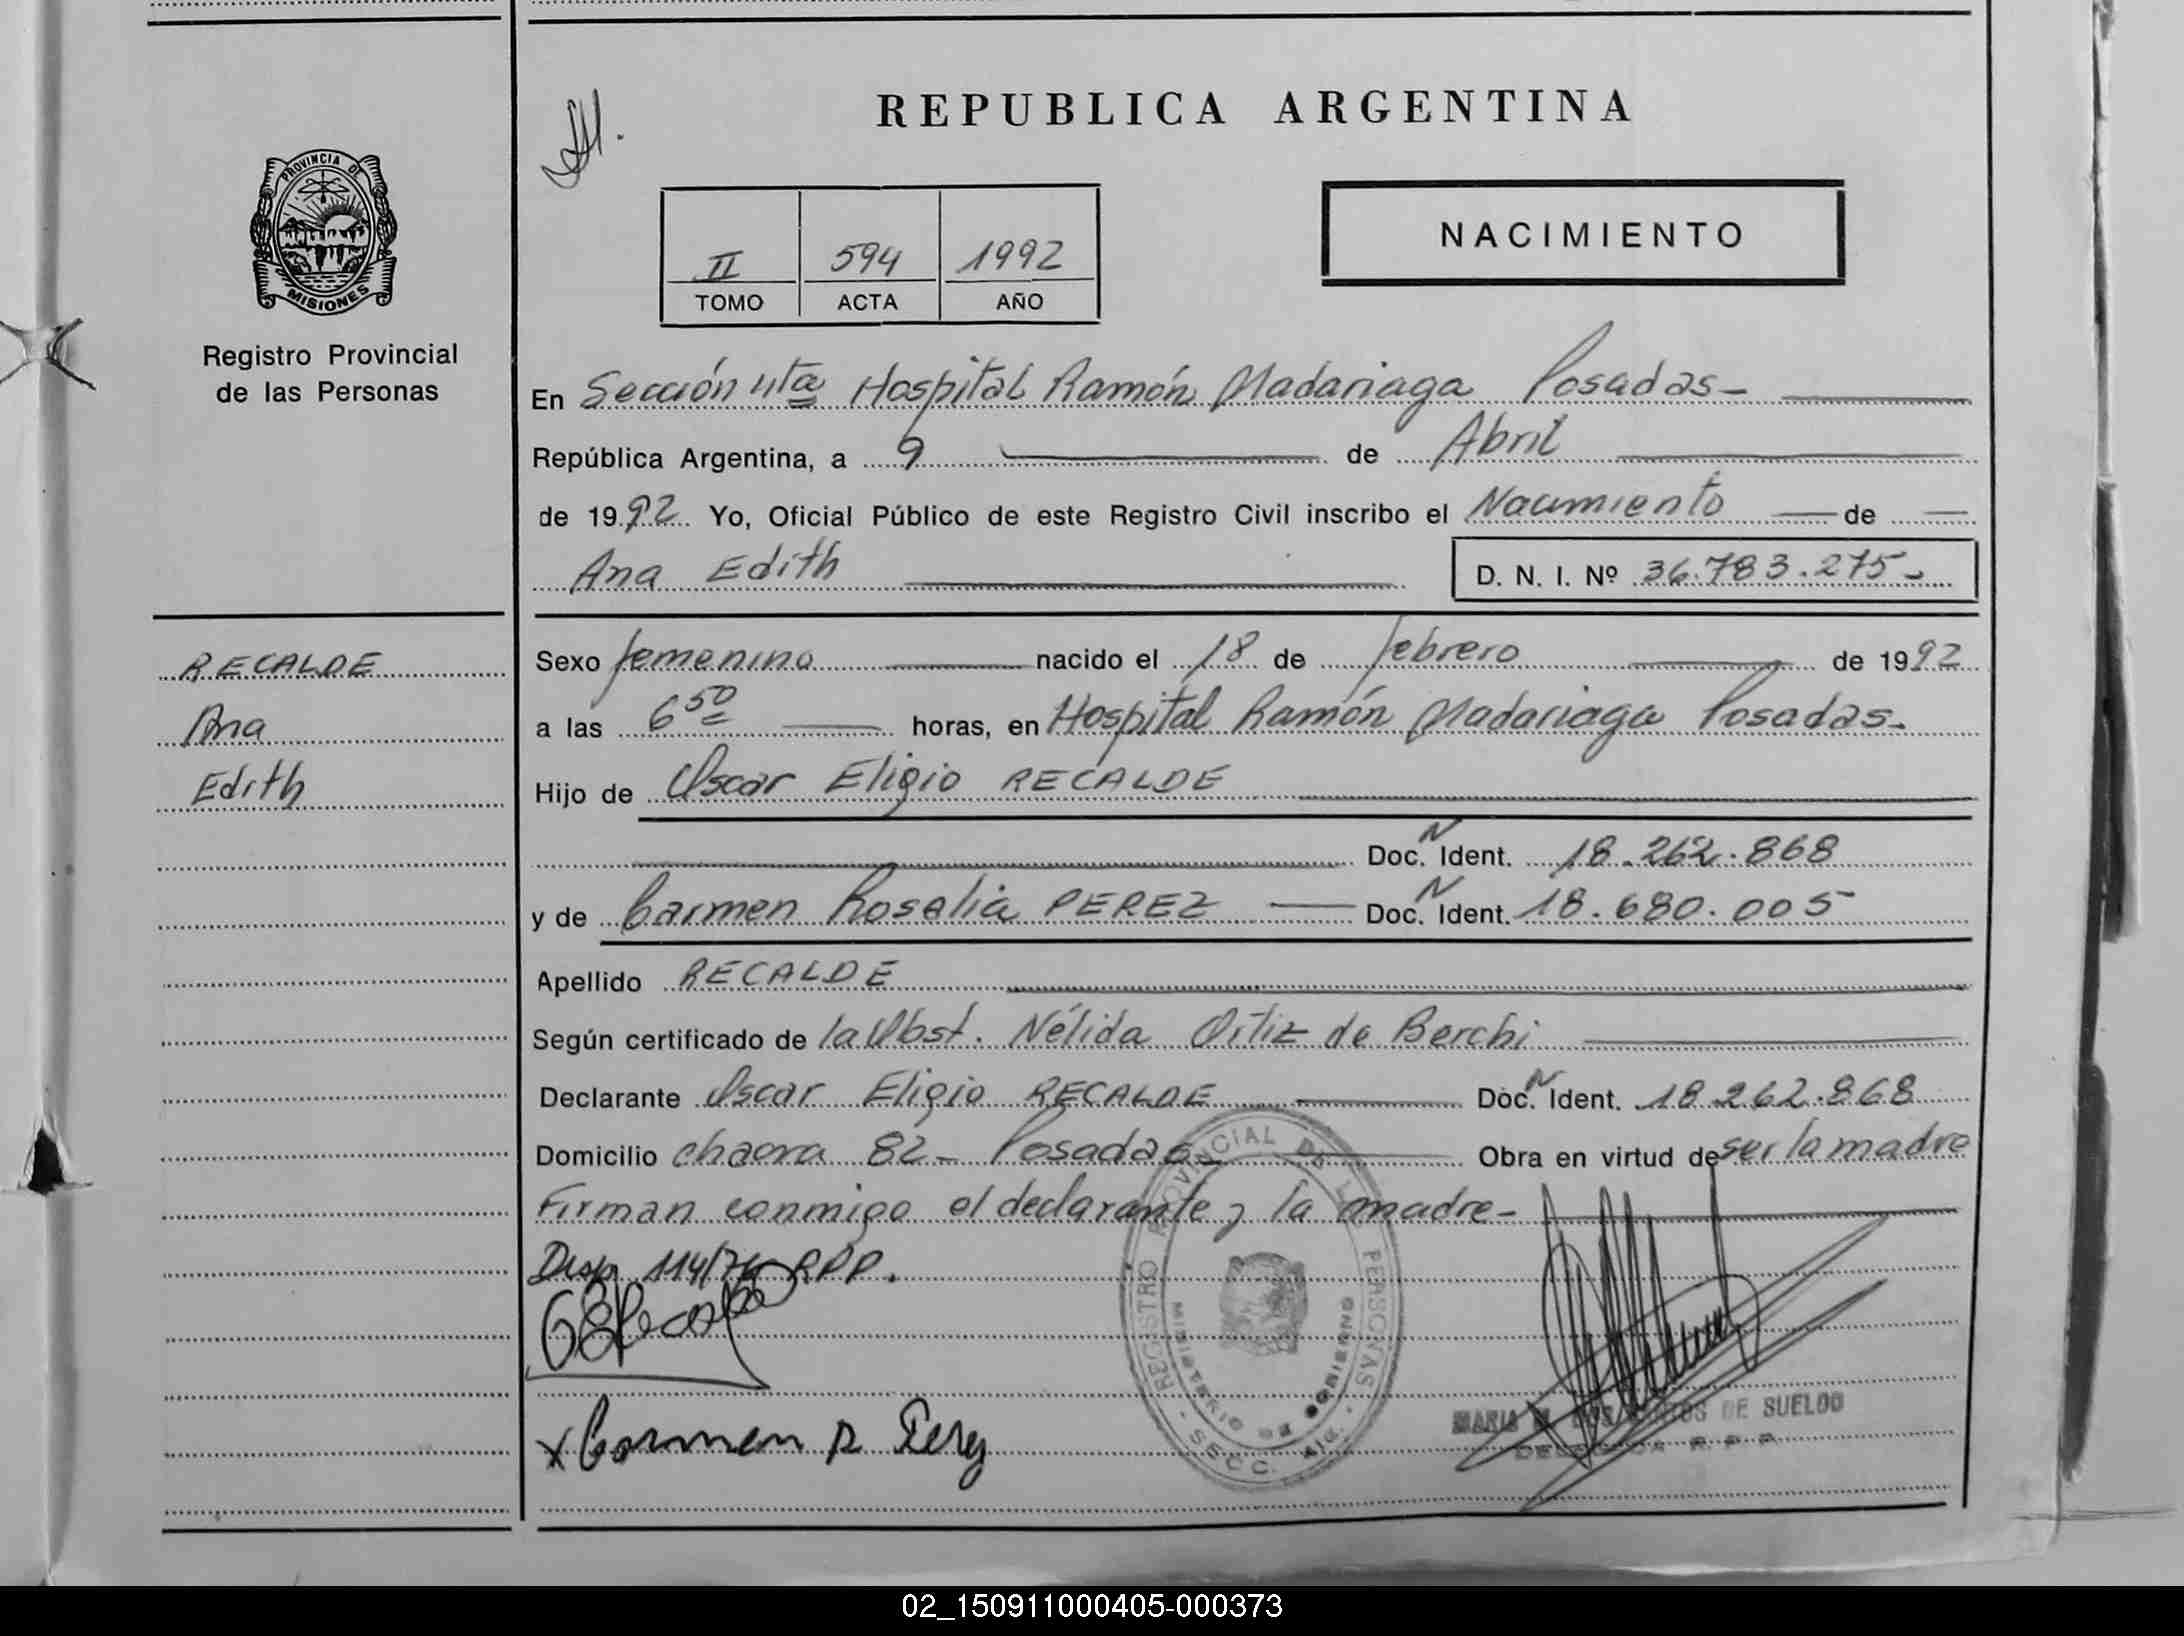 REPUBLICA ARGENTINA
NACIMIENTO
II 594 1992
TOMO ACTA AÑO
PROVINCIA DE
MISIONES
Registro Provincial
de las Personas
RECALDE
Ana
Edith
En Sección 4ta Hospital Ramón Madariaga Posadas-
República Argentina, a 9 de Abril
de 1992 Yo, Oficial Público de este Registro Civil inscribo el Nacimiento de
Ana Edith D. N. I. Nº 36.783.275-
Sexo femenino nacido el 18 de febrero de 1992
a las 6 50 horas, en Hospital Ramón Madariaga Posadas-
Hijo de Oscar Eligio RECALDE
Doc. N Ident. 18.262.868
y de Carmen Rosalia PEREZ Doc. N Ident. 18.680.005
Apellido RECALDE
Según certificado de la Obst. Nélida Ortiz de Berchi
Declarante Oscar Eligio RECALDE Doc. N Ident. 18.262.868
Domicilio chacra 82- Posadas- Obra en virtud de ser la madre
Firman conmigo el declarante y la madre-
Disp. 114/76 RPP.
x Carmen R Perez
REGISTRO PROVINCIAL DE L PERSONAS
MINISTERIO DE GOBIERNO
SECC. 4ta.
MARIA DOS SANTOS DE SUELDO
DELEGADA R.P.P.
02_150911000405-000373